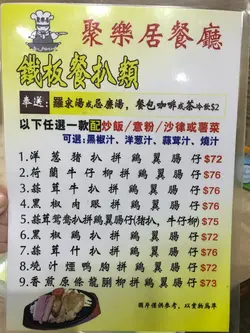 聚樂居餐廳
鐵板餐扒類
奉送：羅宋湯或忌廉湯，餐包咖啡或茶冷飲$2
以下任選一款配炒飯/意粉/沙律或薯菜
可選：黑椒汁、洋葱汁、蒜茸汁、燒汁
1.洋葱豬扒拼鷄翼腸仔$72
2.荷蘭牛仔柳拼鷄翼腸仔$73
3.蒜茸牛扒拼鷄翼腸仔$76
4.黑椒肉眼拼鷄翼腸仔$76
5.蒜茸鴛鴦扒拼鷄翼腸仔(豬扒，牛仔柳)$75
6.黑椒鷄扒拼鷄翼腸仔$72
7.蒜茸什扒拼鷄翼腸仔$76
8.燒汁煙鴨胸拼鷄翼腸仔$73
9.香煎原條龍脷柳拼鷄翼腸仔$73
圖片僅供參考，以實物為準